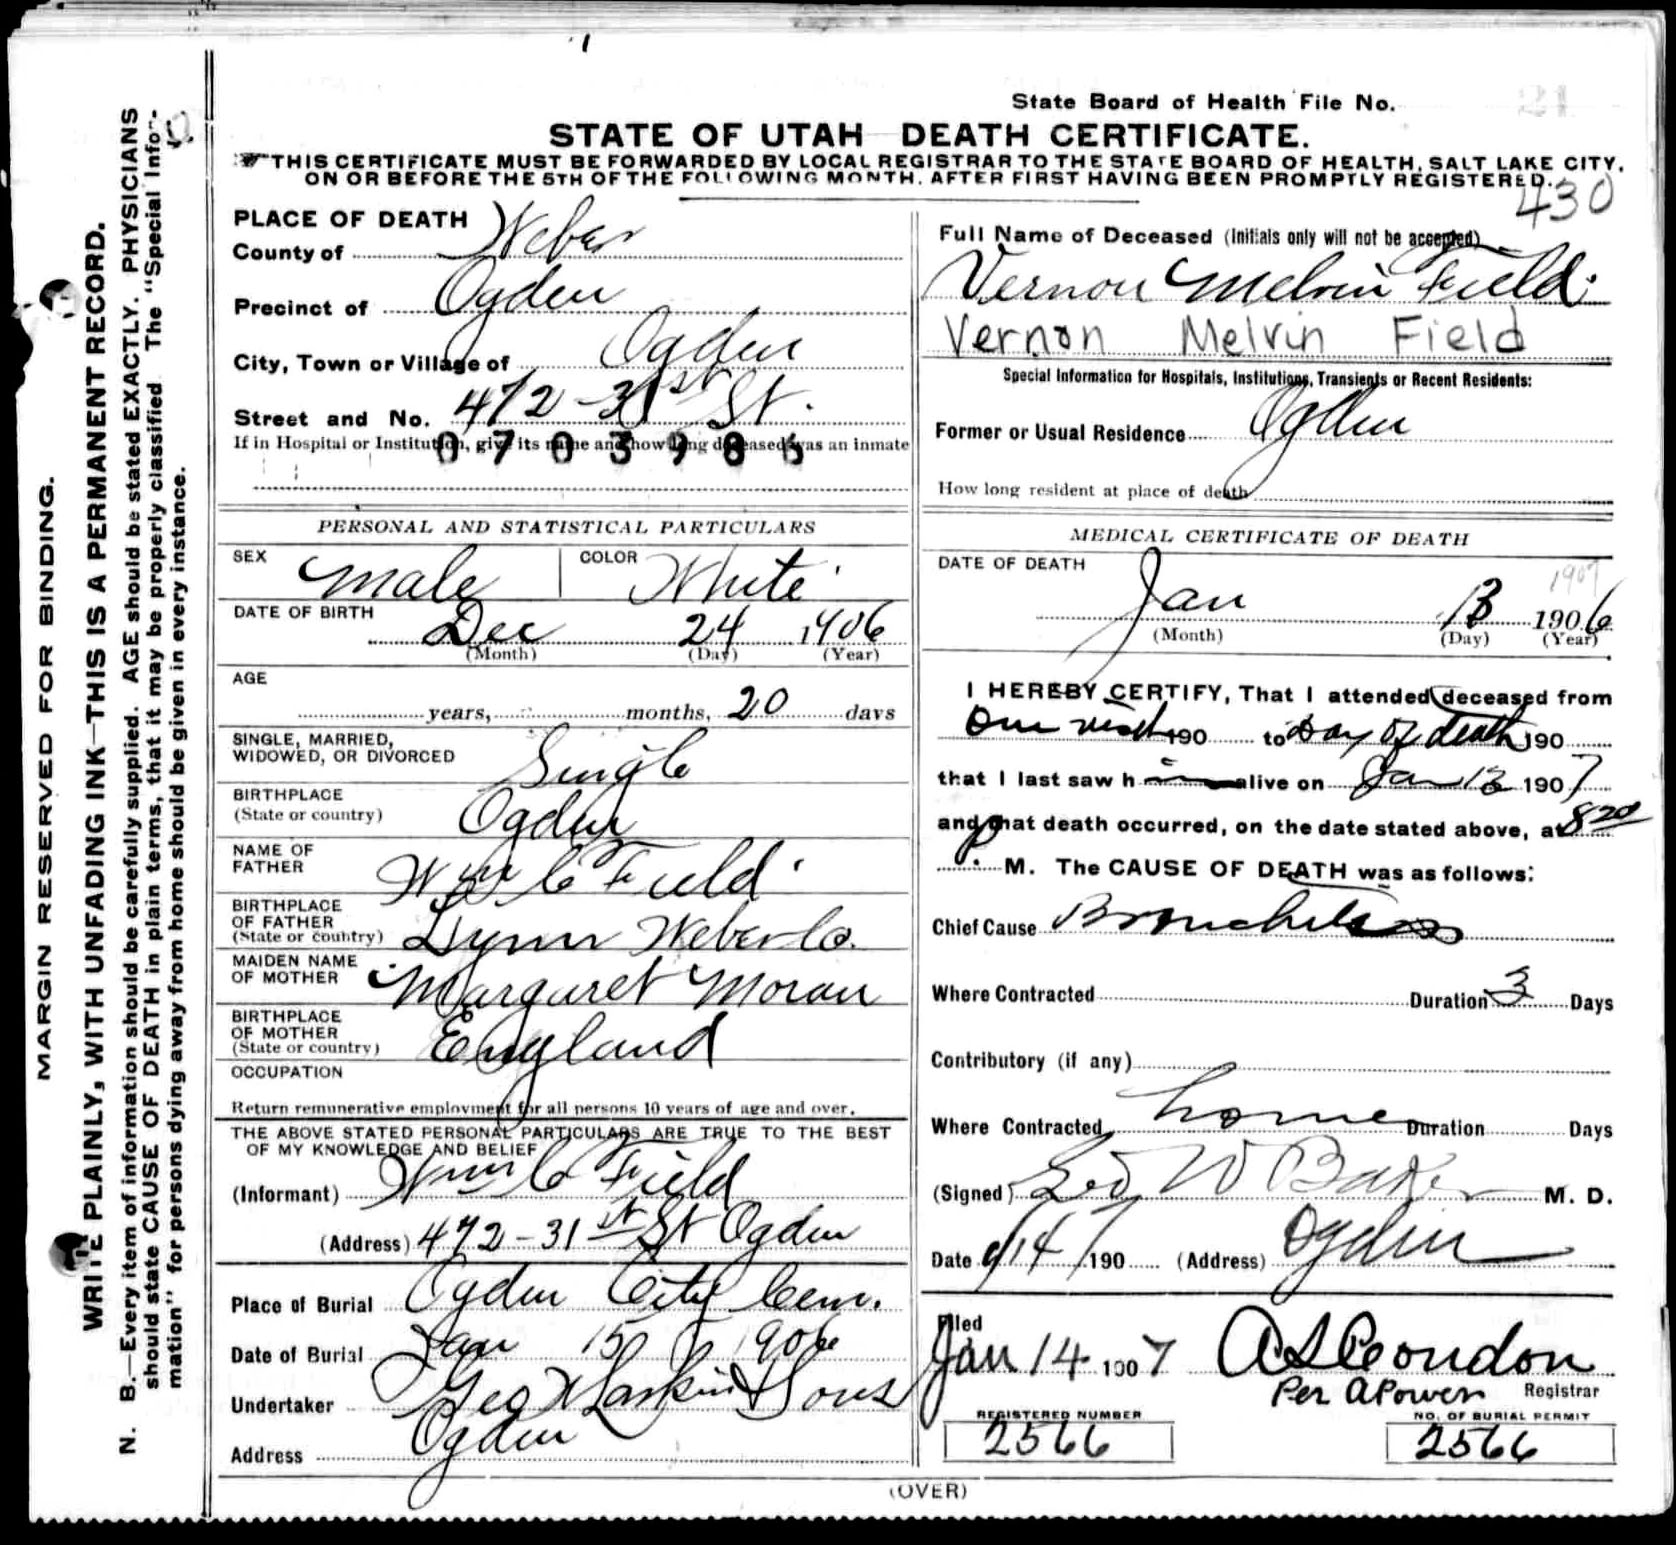 State Board of Health File No.
21
STATE OF UTAH DEATH CERTIFICATE.
THIS CERTIFICATE MUST BE FORWARDED BY LOCAL REGISTRAR TO THE STATE BOARD OF HEALTH, SALT LAKE CITY,
ON OR BEFORE THE 5TH OF THE FOLLOWING MONTH, AFTER FIRST HAVING BEEN PROMPTLY REGISTERED.
430
MARGIN RESERVED FOR BINDING.
WRITE PLAINLY, WITH UNFADING INK—THIS IS A PERMANENT RECORD.
N. B.—Every item of information should be carefully supplied. AGE should be stated EXACTLY. PHYSICIANS
should state CAUSE OF DEATH in plain terms, that it may be properly classified. The "Special Infor-
mation" for persons dying away from home should be given in every instance.
PLACE OF DEATH
County of Weber
Precinct of Ogden
City, Town or Village of Ogden
Street and No. 472-31st St.
If in Hospital or Institution, give its name and how long deceased was an inmate
0703986
PERSONAL AND STATISTICAL PARTICULARS
SEX Male COLOR White
DATE OF BIRTH
Dec 24 1906
(Month) (Day) (Year)
AGE
years, months, 20 days
SINGLE, MARRIED,
WIDOWED, OR DIVORCED Single
BIRTHPLACE
(State or country) Ogden
NAME OF
FATHER Wm C Field
BIRTHPLACE
OF FATHER
(State or country) Lynn Weber Co.
MAIDEN NAME
OF MOTHER Margaret Moran
BIRTHPLACE
OF MOTHER
(State or country) England
OCCUPATION
Return remunerative employment for all persons 10 years of age and over.
THE ABOVE STATED PERSONAL PARTICULARS ARE TRUE TO THE BEST
OF MY KNOWLEDGE AND BELIEF
(Informant) Wm C Field
(Address) 472-31st St Ogden
Place of Burial Ogden City Cem.
Date of Burial Jan 15 1906
Undertaker Geo W Larkin & Sons
Address Ogden
Full Name of Deceased (Initials only will not be accepted)
Vernon Melvin Field
Vernon Melvin Field
Special Information for Hospitals, Institutions, Transients or Recent Residents:
Former or Usual Residence Ogden
How long resident at place of death
MEDICAL CERTIFICATE OF DEATH
DATE OF DEATH
1907
Jan 13 1906
(Month) (Day) (Year)
I HEREBY CERTIFY, That I attended deceased from
One visit 190 to Day of death 190
that I last saw him alive on Jan 13 1907
and that death occurred, on the date stated above, at 8 20
P. M. The CAUSE OF DEATH was as follows:
Chief Cause Bronchitis
Where Contracted Duration 3 Days
Contributory (if any)
Where Contracted home Duration Days
(Signed) Geo W Baker M. D.
Date 1/14/ 190 (Address) Ogden
Filed
Jan 14 1907 A S Condon
Per A Power Registrar
REGISTERED NUMBER
2566
NO. OF BURIAL PERMIT
2566
(OVER)